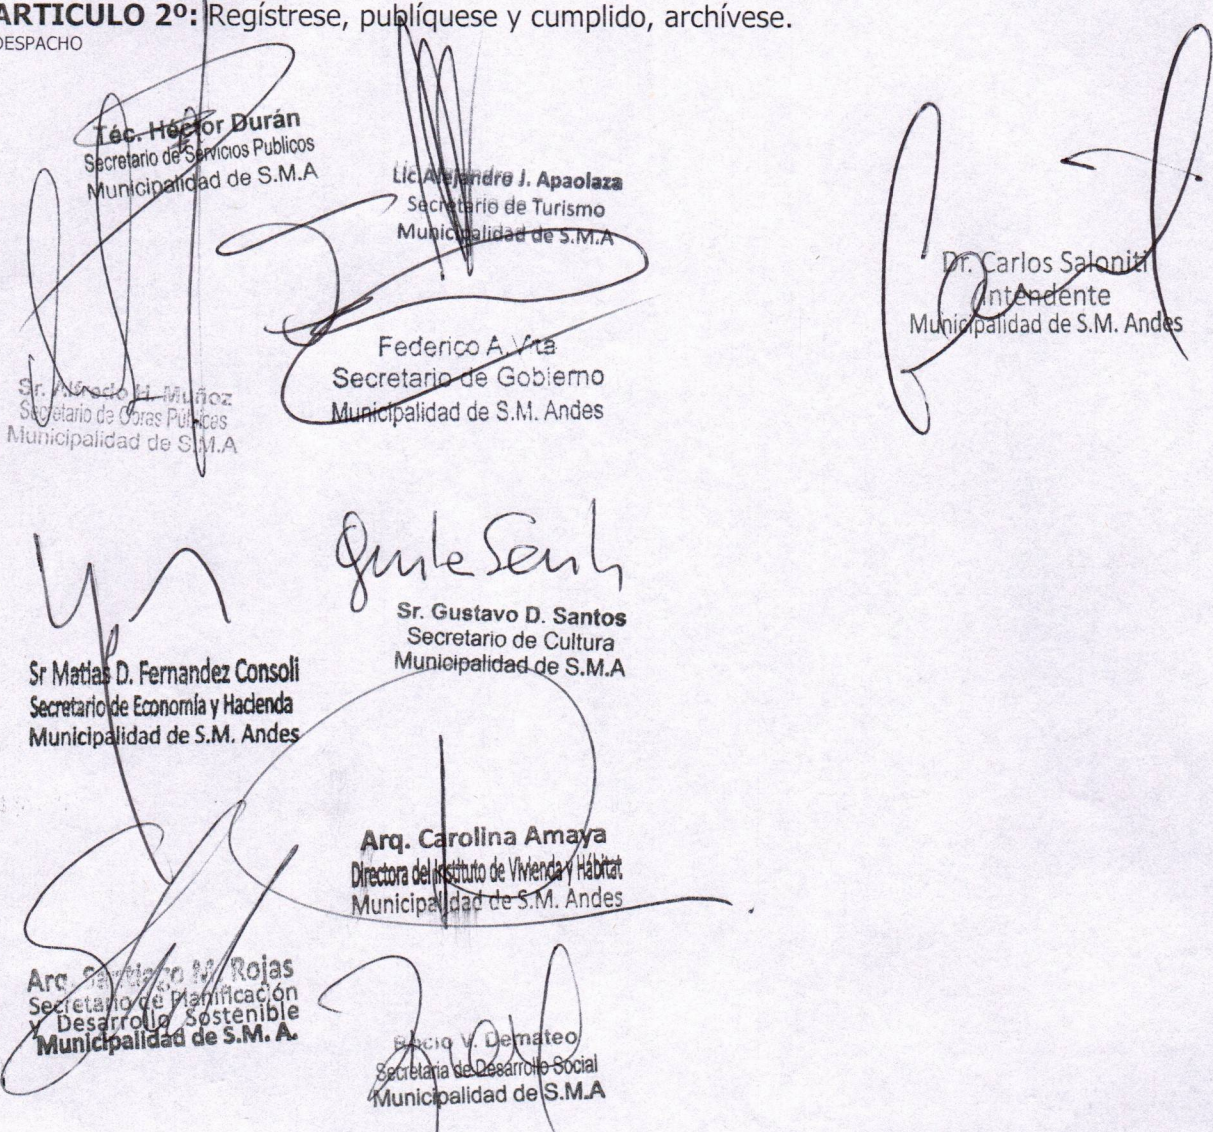 ARTICULO 2º: Regístrese, publíquese y cumplido, archívese.
DESPACHO
Téc. Héctor Durán
Secretario de Servicios Publicos
Municipalidad de S.M.A
Lic Alejandro J. Apaolaza
Secretario de Turismo
Municipalidad de S.M.A
Dr. Carlos Saloniti
Intendente
Municipalidad de S.M. Andes
Federico A. Vita
Secretario de Gobierno
Municipalidad de S.M. Andes
Sr. Alfredo H. Muñoz
Secretario de Obras Públicas
Municipalidad de S.M.A
Sr. Gustavo D. Santos
Secretario de Cultura
Municipalidad de S.M.A
Sr Matias D. Fernandez Consoli
Secretario de Economía y Hacienda
Municipalidad de S.M. Andes
Arq. Carolina Amaya
Directora del Instituto de Vivienda y Hábitat
Municipalidad de S.M. Andes
Arq. Santiago M. Rojas
Secretario de Planificación
y Desarrollo Sostenible
Municipalidad de S.M. A.
V. Demateo
Secretaria de Desarrollo Social
Municipalidad de S.M.A